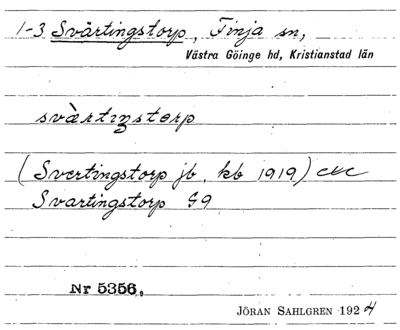 1-3 Svärtingstorp, Finja sn,
Västra Göinge hd, Kristianstad län
svæ̀rtiŋstɵrp
(Svertingstorp jb, kb 1919) etc
Svartingstorp G9
Nr 5356,
JÖRAN SAHLGREN 1924